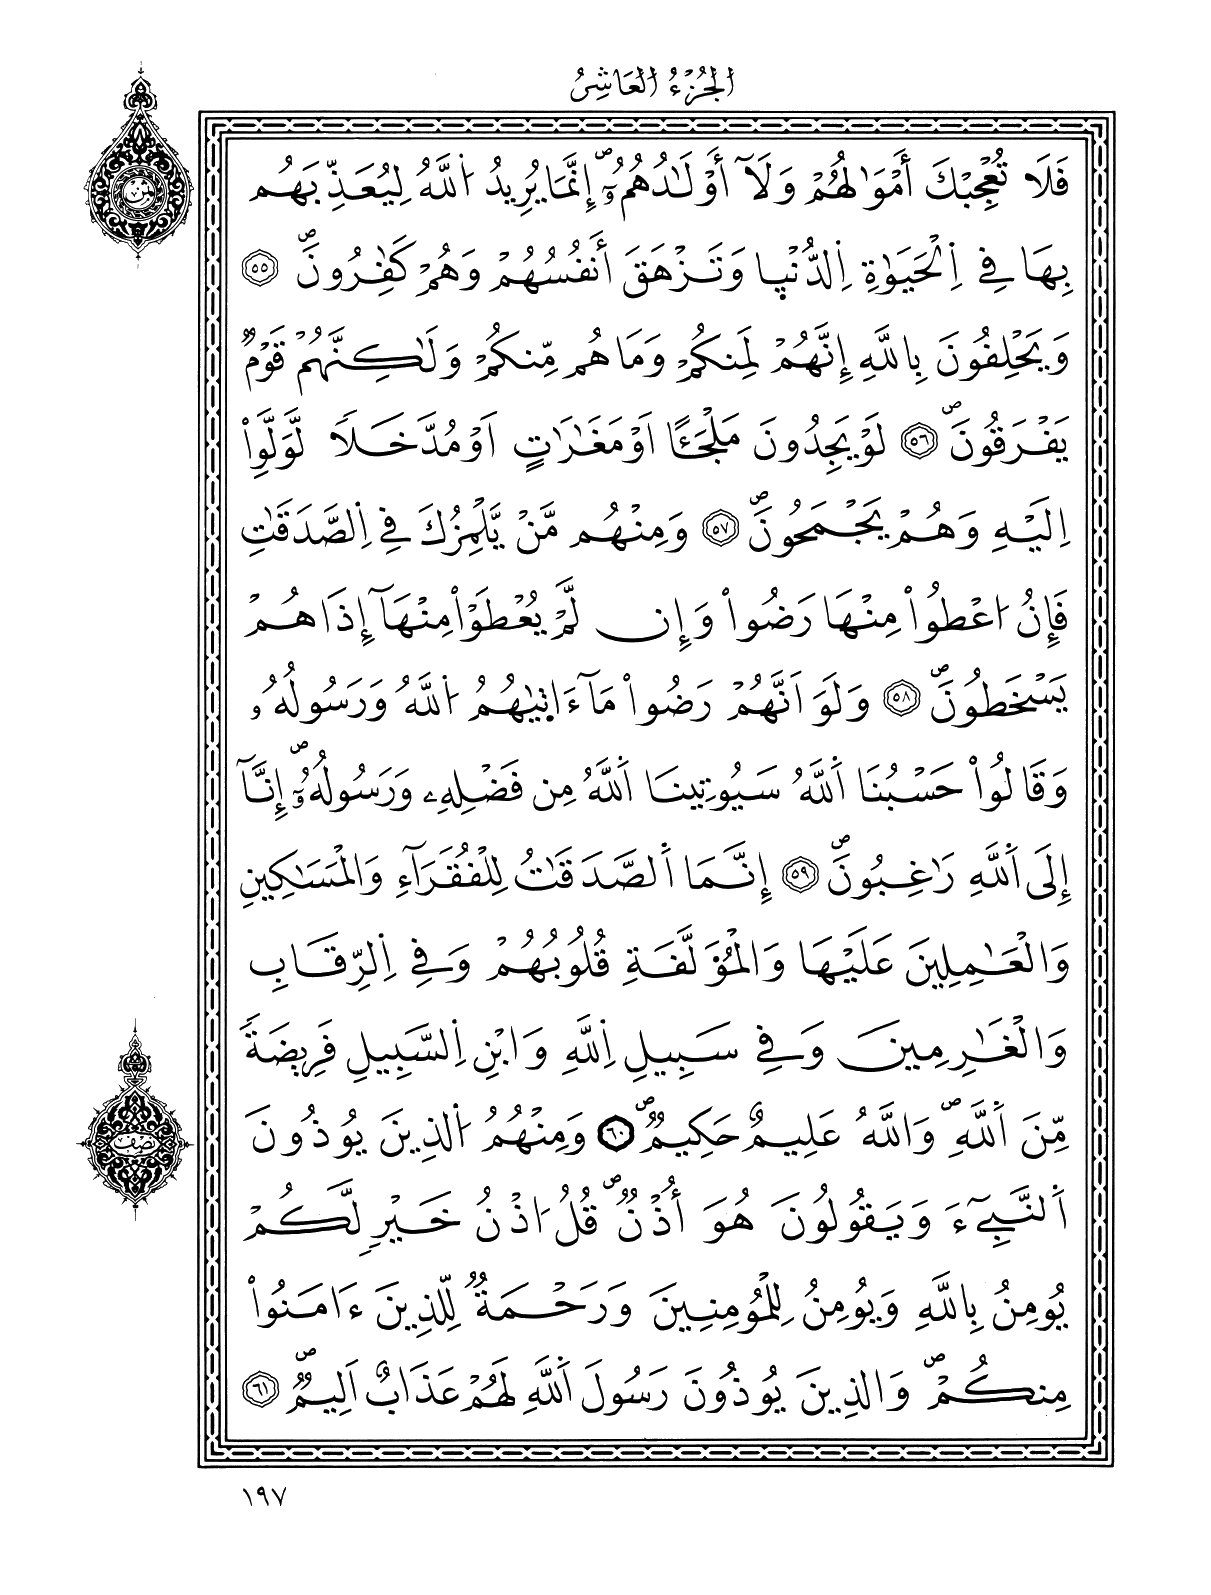 الجُزْءُ العَاشِرُ
فَلَا تُعْجِبْكَ أَمْوَٰلُهُمْ وَلَآ أَوْلَٰدُهُمُۥٓۖ إِنَّمَا يُرِيدُ اَ۬للَّهُ لِيُعَذِّبَهُم
بِهَا فِے اِ۬لْحَيَوٰةِ اِ۬لدُّنْي۪ا وَتَزْهَقَ أَنفُسُهُمْ وَهُمْ كَٰفِرُونَۖ ٥٥
وَيَحْلِفُونَ بِاللَّهِ إِنَّهُمْ لَمِنكُمْ وَمَا هُم مِّنكُمْ وَلَٰكِنَّهُمْ قَوْمٞ
يَفْرَقُونَۖ ٥٦ لَوْ يَجِدُونَ مَلْجَـٔاً اَوْ مَغَٰرَٰتٍ اَوْ مُدَّخَلاٗ لَّوَلَّوِاْ
اِلَيْهِ وَهُمْ يَجْمَحُونَۖ ٥٧ وَمِنْهُم مَّنْ يَّلْمِزُكَ فِے اِ۬لصَّدَقَٰتِ
فَإِنُ ا۟عْطُواْ مِنْهَا رَضُواْ وَإِن لَّمْ يُعْطَوْاْ مِنْهَآ إِذَا هُمْ
يَسْخَطُونَۖ ٥٨ وَلَوَ اَنَّهُمْ رَضُواْ مَآ ءَات۪يٰهُمُ اُ۬للَّهُ وَرَسُولُهُۥ
وَقَالُواْ حَسْبُنَا اَ۬للَّهُ سَيُوتِينَا اَ۬للَّهُ مِن فَضْلِهِۦ وَرَسُولُهُۥٓۖ إِنَّآ
إِلَى اَ۬للَّهِ رَٰغِبُونَۖ ٥٩ إِنَّمَا اَ۬لصَّدَقَٰتُ لِلْفُقَرَآءِ وَالْمَسَٰكِينِ
وَالْعَٰمِلِينَ عَلَيْهَا وَالْمُؤَلَّفَةِ قُلُوبُهُمْ وَفِے اِ۬لرِّقَابِ
وَالْغَٰرِمِينَ وَفِے سَبِيلِ اِ۬للَّهِ وَابْنِ اِ۬لسَّبِيلِ فَرِيضَةٗ
مِّنَ اَ۬للَّهِۖ وَاللَّهُ عَلِيمٌ حَكِيمٞۖ ٦٠ وَمِنْهُمُ اُ۬لذِينَ يُوذُونَ
اَ۬لنَّبِےٓءَ وَيَقُولُونَ هُوَ أُذْنٞۖ قُلُ ا۟ذْنُ خَيْرٖ لَّكُمْ
يُومِنُ بِاللَّهِ وَيُومِنُ لِلْمُومِنِينَ وَرَحْمَةٞ لِّلذِينَ ءَامَنُواْ
مِنكُمْۖ وَالذِينَ يُوذُونَ رَسُولَ اَ۬للَّهِ لَهُمْ عَذَابٌ اَلِيمٞۖ ٦١
ثمن
نصف
١٩٧